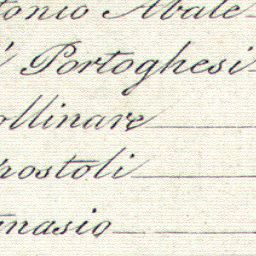 tonio Abate
i Portoghesi
ollinare
postoli
nasio